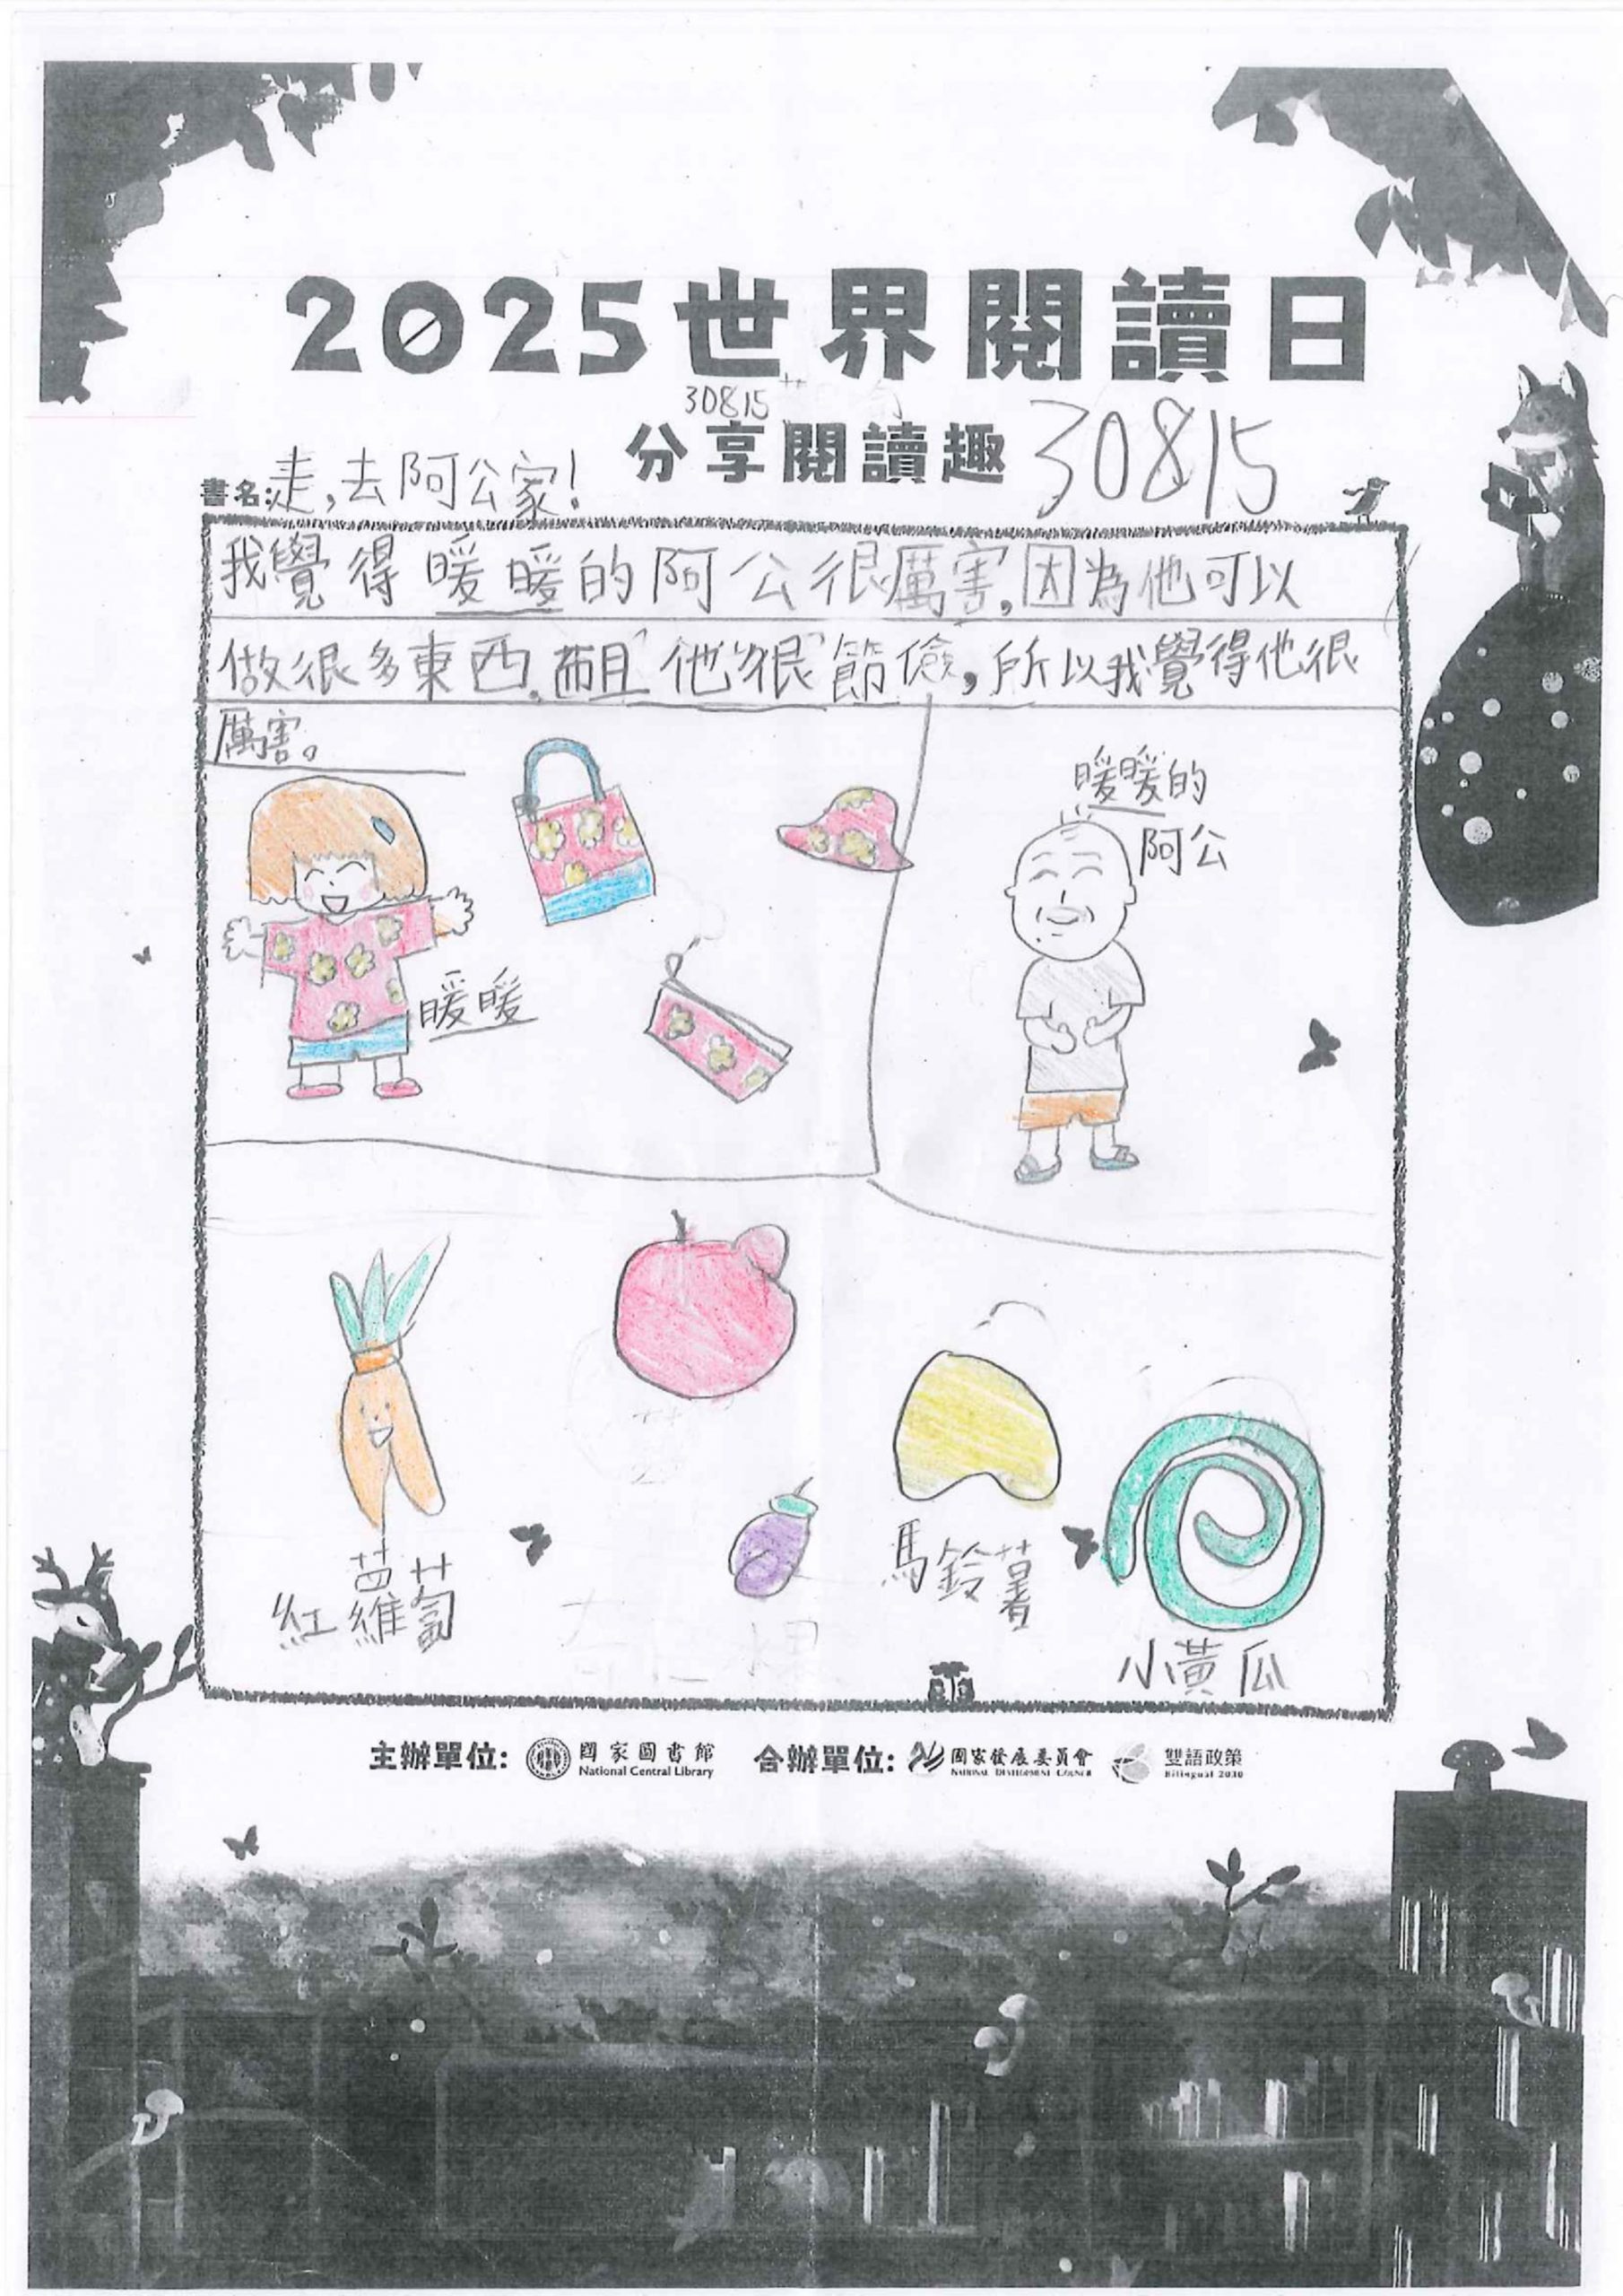 2025世界閱讀日
30815
分享閱讀趣 30815
書名:走,去阿公家!
我覺得暖暖的阿公很厲害,因為他可以
做很多東西,而且他很節儉,所以我覺得他很
厲害。
暖暖的
阿公
暖暖
紅蘿蔔
馬鈴薯
小黃瓜
主辦單位: 國家圖書館 National Central Library 合辦單位: 國家發展委員會 NATIONAL DEVELOPMENT COUNCIL 雙語政策 Bilingual 2030